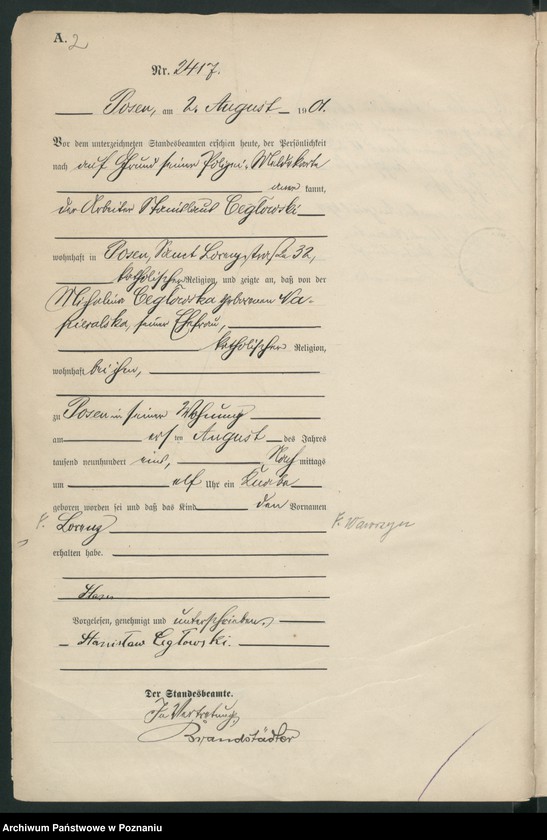 A. 2
Nr. 2417.
Posen, am 2. August 1901.
Vor dem unterzeichneten Standesbeamten erschien heute, der Persönlichkeit
nach auf Grund seiner Polizei-Meldekarte
aner kannt,
der Arbeiter Stanislaus Ceglowski
wohnhaft in Posen, Sanct Lorenzstraße 32,
katholischer Religion, und zeigte an, daß von der
Ceglowska geborenen
seiner Ehefrau,
katholischer Religion,
wohnhaft bei ihm,
zu Posen in seiner Wohnung
am ersten August des Jahres
tausend neunhundert eins, Nach mittags
um elf Uhr ein Knabe
geboren worden sei und daß das Kind den Vornamen
F. Lorenz F. Wawrzyn
erhalten habe.
Vorgelesen, genehmigt und unterschrieben.
Stanisław Cegłowski.
Der Standesbeamte.
In Vertretung
Brandstädter
Archiwum Państwowe w Poznaniu